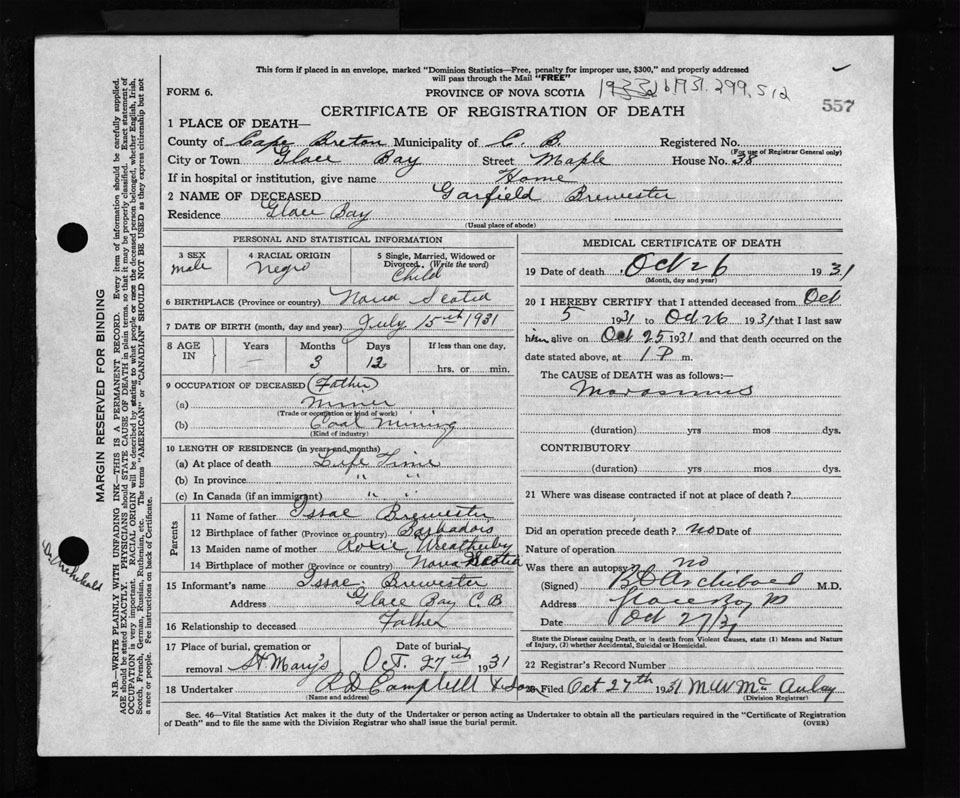 This form if placed in an envelope, marked "Dominion Statistics—Free, penalty for improper use, $300," and properly addressed
will pass through the Mail "FREE"
FORM 6. PROVINCE OF NOVA SCOTIA 1931. 299, 512
557
CERTIFICATE OF REGISTRATION OF DEATH
1 PLACE OF DEATH—
County of Cape Breton Municipality of C. B. Registered No.
(For use of Registrar General only)
City or Town Glace Bay Street Maple House No. 38
If in hospital or institution, give name Home
2 NAME OF DECEASED Garfield Brewester
Residence Glace Bay
(Usual place of abode)
PERSONAL AND STATISTICAL INFORMATION
3 SEX male
4 RACIAL ORIGIN Negro
5 Single, Married, Widowed or Divorced. (Write the word) Child
6 BIRTHPLACE (Province or country) Nova Scotia
7 DATE OF BIRTH (month, day and year) July 15th 1931
8 AGE IN Years — Months 3 Days 12 If less than one day, hrs. or min.
9 OCCUPATION OF DECEASED (Father)
(a) Miner
(Trade or occupation or kind of work)
(b) Coal Mining
(Kind of industry)
10 LENGTH OF RESIDENCE (in years and months)
(a) At place of death Life Time
(b) In province " "
(c) In Canada (if an immigrant) " "
Parents
11 Name of father Issac Brewester
12 Birthplace of father (Province or country) Barbadois
13 Maiden name of mother Roxie Weatherby
14 Birthplace of mother (Province or country) Nova Scotia
15 Informant's name Issac Brewester
Address Glace Bay C. B
16 Relationship to deceased Father
17 Place of burial, cremation or removal St Mary's
Date of burial Oct. 27th 1931
18 Undertaker R D Campbell & Son
(Name and address)
MEDICAL CERTIFICATE OF DEATH
19 Date of death Oct 26 1931
(Month, day and year)
20 I HEREBY CERTIFY that I attended deceased from Oct
5 1931 to Oct 26 1931 that I last saw
him alive on Oct 25 1931 and that death occurred on the
date stated above, at 1 P m.
The CAUSE of DEATH was as follows:—
Marasmus
(duration) yrs mos dys.
CONTRIBUTORY
(duration) yrs mos dys.
21 Where was disease contracted if not at place of death?
Did an operation precede death? no Date of
Nature of operation
Was there an autopsy? no
(Signed) Archibald M.D.
Address Glace Bay
Date Oct 27/31
State the Disease causing Death, or in death from Violent Causes, state (1) Means and Nature
of Injury, (2) whether Accidental, Suicidal or Homicidal.
22 Registrar's Record Number
Filed Oct 27th 1931 McAulay
(Division Registrar)
Sec. 46—Vital Statistics Act makes it the duty of the Undertaker or person acting as Undertaker to obtain all the particulars required in the "Certificate of Registration
of Death" and to file the same with the Division Registrar who shall issue the burial permit. (OVER)
MARGIN RESERVED FOR BINDING
N.B.—WRITE PLAINLY WITH UNFADING INK—THIS IS A PERMANENT RECORD. Every item of information should be carefully supplied.
AGE should be stated EXACTLY. PHYSICIANS should STATE CAUSE OF DEATH in plain terms, so that it may be properly classified. Exact statement of
OCCUPATION is very important. RACIAL ORIGIN will be described by stating to what people or race the deceased person belonged, whether English, Irish,
Scotch, French, German, Russian, Ruthenian, etc. The terms "AMERICAN" or "CANADIAN" SHOULD NOT BE USED as they express citizenship but not
a race or people. Fee instructions on back of Certificate.
Archibald